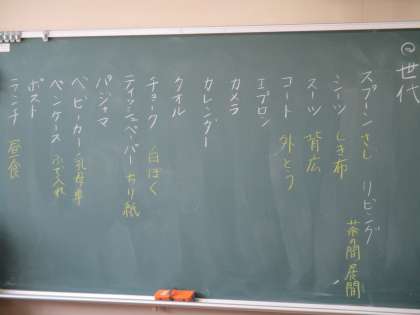 @世代
スプーン さじ リビング 茶の間 居間
シーツ しき布
スーツ 背広
コート 外とう
エプロン
カメラ
カレンダー
タオル
チョーク 白ぼく
ティッシュペーパー ちり紙
パジャマ
ベビーカー 乳母車
ペンケース ふで入れ
ポスト
ランチ 昼食